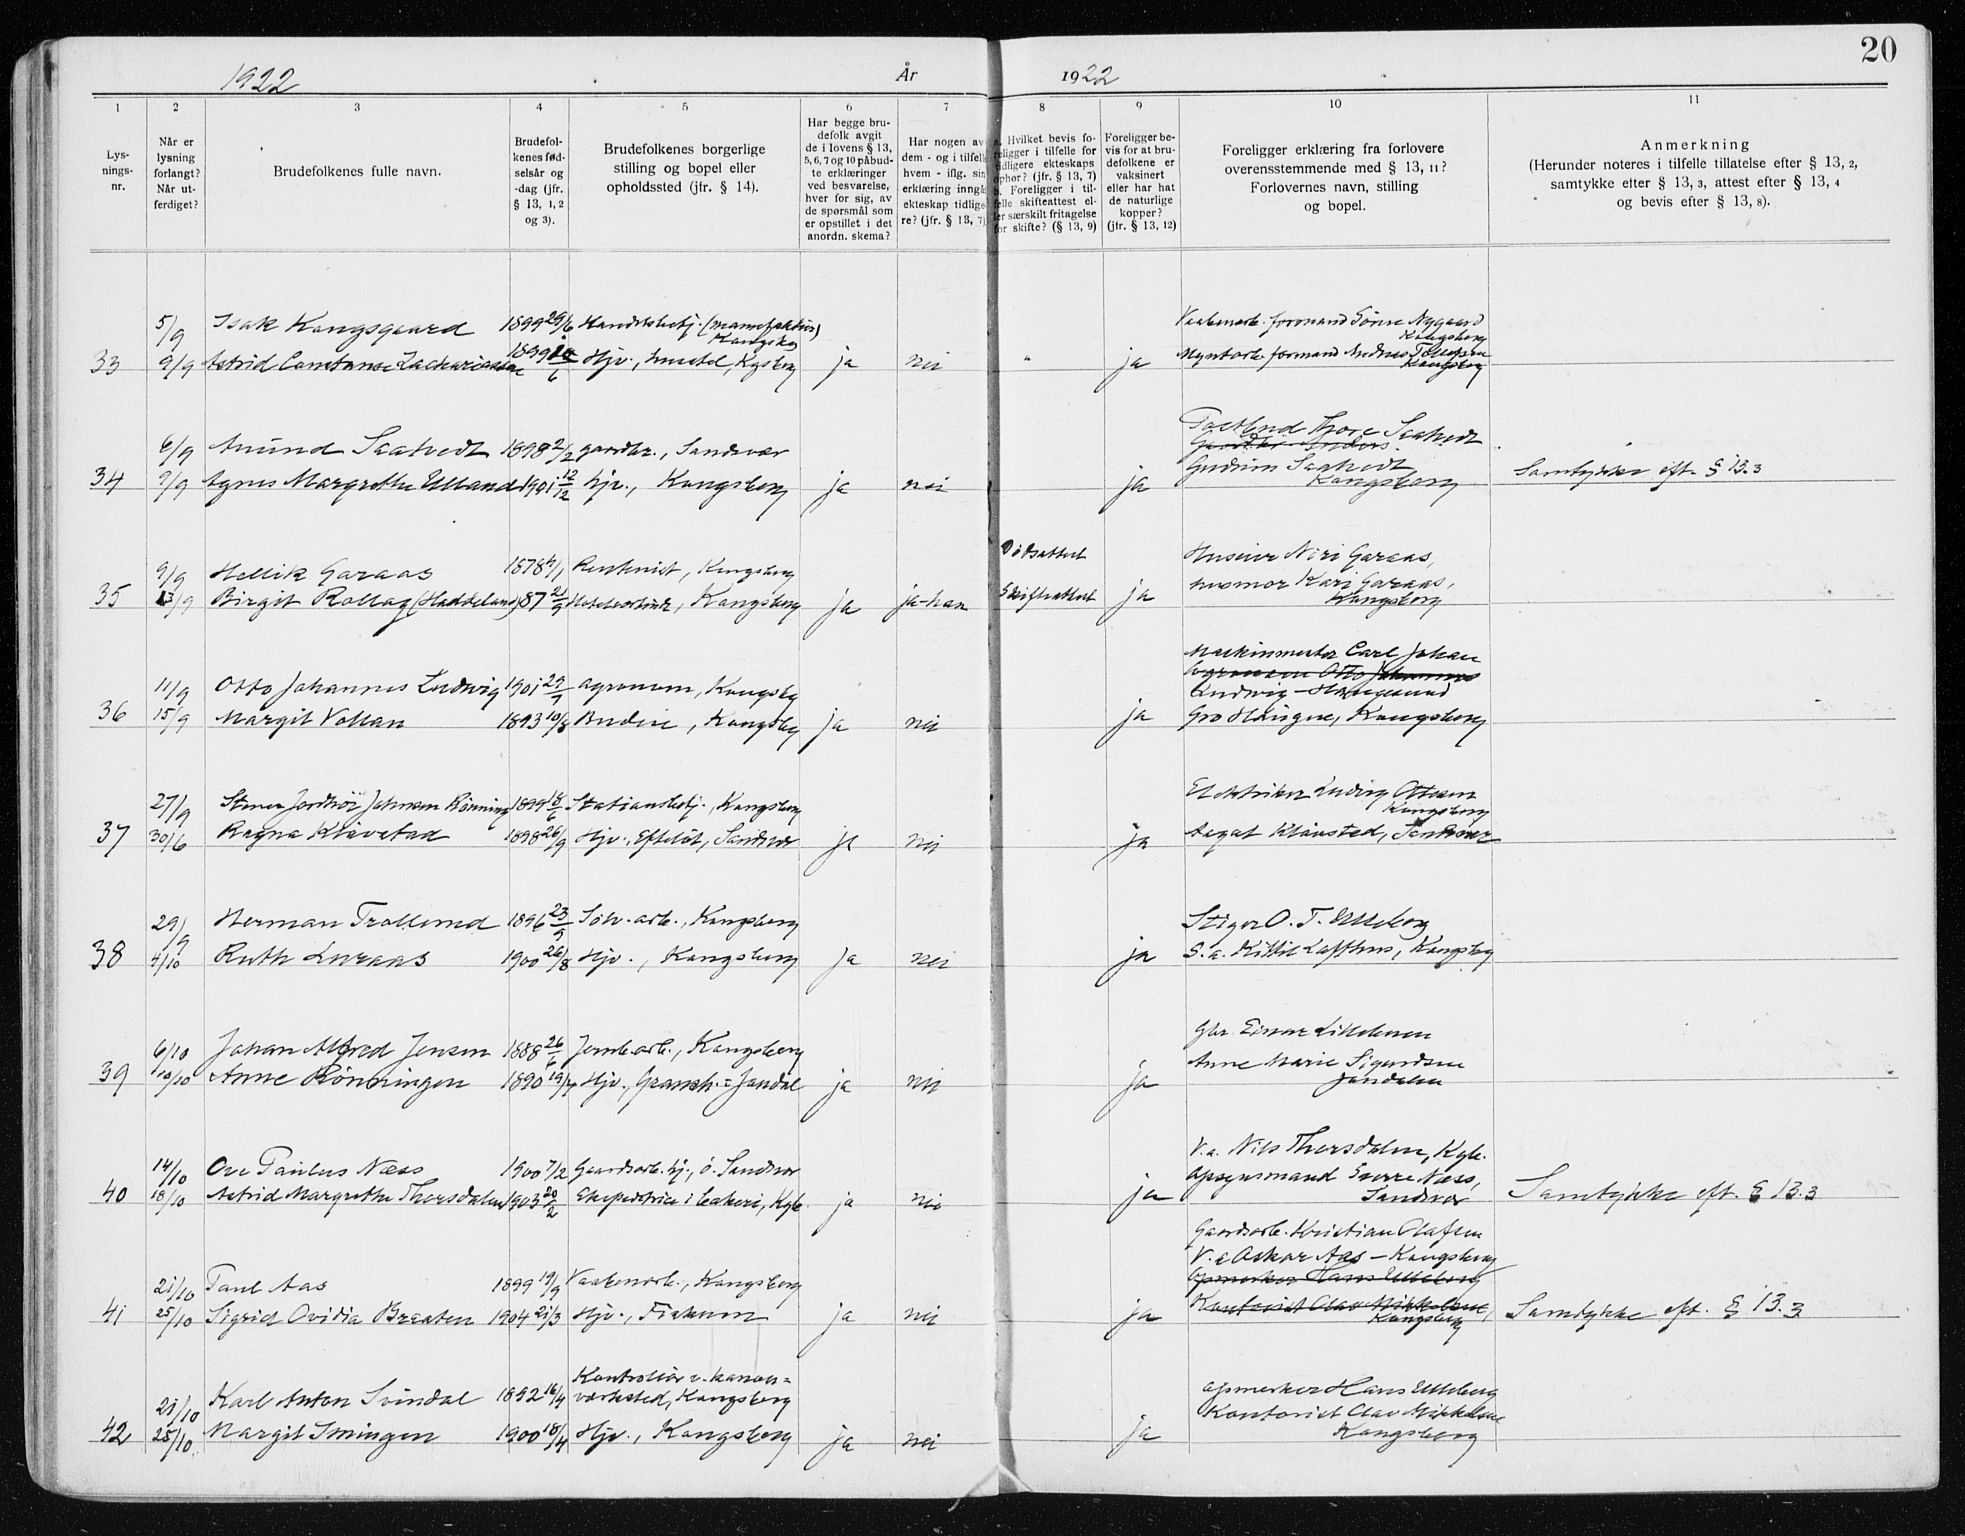 20
1922 År 1922
1 2 3 4 5 6 7 8 9 10 11
Lys-
nings-
nr.
Når er
lysning
forlangt?
Når ut-
ferdiget?
Brudefolkenes fulle navn.
Brudefol-
kenes fød-
selsår og
-dag (jfr.
§ 13, 1, 2
og 3).
Brudefolkenes borgerlige
stilling og bopel eller
opholdssted (jfr. § 14).
Har begge bru-
defolk avgit
de i lovens § 13,
5, 6, 7 og 10 påbud-
te erklæringer
ved besvarelse,
hver for sig, av
de spørsmål som
er opstillet i det
anordn. skema?
Har nogen av
dem - og i tilfelle
hvem - iflg. sin
erklæring inngå
ekteskap tidlige-
re? (jfr. § 13, 7)
a. Hvilket bevis fo-
religger i tilfelle for
tidligere ekteskaps
ophør? (jfr. § 13, 7)
b. Foreligger i til-
felle skifteattest el-
ler særskilt fritagelse
for skifte? (§ 13, 9)
Foreligger be-
vis for at bru-
defolkene er
vaksinert
eller har hat
de naturlige
kopper?
(jfr. § 13, 12)
Foreligger erklæring fra forlovere
overensstemmende med § 13, 11?
Forlovernes navn, stilling
og bopel.
Anmerkning
(Herunder noteres i tilfelle tillatelse efter § 13, 2,
samtykke etter § 13, 3, attest efter § 13, 4
og bevis efter § 13, 8).
5/9 Isak Kongsgaard 1899 29/6 Handelsbetj. (manufaktur) Vaabenarb. formand Nygaard
Kongsberg
33 9/9 Astrid Constanse Zachariassen 1899 /6 Hjv., Kgsberg ja nei " ja Myntarb. formand Andreas Tollefsen
Kongsberg
6/9 Amund Saatvedt 1898 2/2 gardbr., Sandsvær Thore Saatvedt
34 9/9 Agnes Margrethe Ulland 1901 12/12 hjv., Kongsberg ja nei ja Gudrun Saatvedt Samtykke eft. § 13.3
Kongsberg
9/9 Hellik Garaas 1878 4/1 Kongsberg Dødsattest Garaas,
35 13/9 Birgit Rollag (Haddeland) 87 2/9 Kongsberg ja ja-han Skifteattest ja husmor Kari Garaas,
Kongsberg
Maskinmester Carl Johan
11/9 Otto Johannes Ludwig 1901 29/7 agronom, Kongsbg agronom Otto Johannes
Ludwig - Haugesund
36 15/9 Margit Vollan 1893 10/8 Budeie, Kongsbg ja nei ja Gro Haugen, Kongsberg
27/9 Johnsen Rønning 1899 18/6 Stationsbetj., Kongsberg Elektriker Ludvig Ottesen
Kongsberg
37 30/6 Ragna Klåvstad 1898 26/9 Hjv., Efteløt, Sandsvær ja nei ja Aagat Klåvstad, Sandsvær
29/9 Herman Trollerud 1896 23/9 Sølv. arb., Kongsberg Stiger O. T. Ulleberg
38 4/10 Ruth Luraas 1900 26/8 Hjv., Kongsberg ja nei ja S.a. Kittil Lofthus, Kongsbg
6/10 Johan Alfred Jensen 1888 26/6 Jernb.arb., Kongsberg Gbr. Einar Lillebenen
39 10/10 Anne Rønningen 1890 19/7 Hjv., Jondal ja nei ja Anne Marie Sigurdsen
Jondalen
14/10 Ove Paulus Næss 1900 7/2 Gaardsarb. hj., ø. Sandsvær V.a. Nils Thorsdalen, Kgb.
40 18/10 Astrid Margrethe Thorsdalen 1903 20/2 Ekspeditrice i bakeri, Kgb. ja nei ja Opsynsmand Sverre Næss,
Sandsvær Samtykke eft. § 13.3
Gaardsarb. Kristian Olafsen
V.a Oskar Aas - Kongsberg
21/10 Paul Aas 1899 19/9 Vaabenarb., Kongsberg Opmerker Hans Ulleberg
41 25/10 Sigrid Ovidia Braaten 1904 21/3 Hjv., Fiskum ja nei ja Kontorist Olav Mikkelsen, Samtykke eft. § 13.3
Kongsberg
21/10 Karl Anton Svindal 1892 16/9 Kontrollør v. kanon=
værksted, Kongsberg Opmerker Hans Ulleberg
42 25/10 Margit Imingen 1900 18/4 Hjv., Kongsberg ja nei ja Kontorist Olav Mikkelsen
Kongsberg